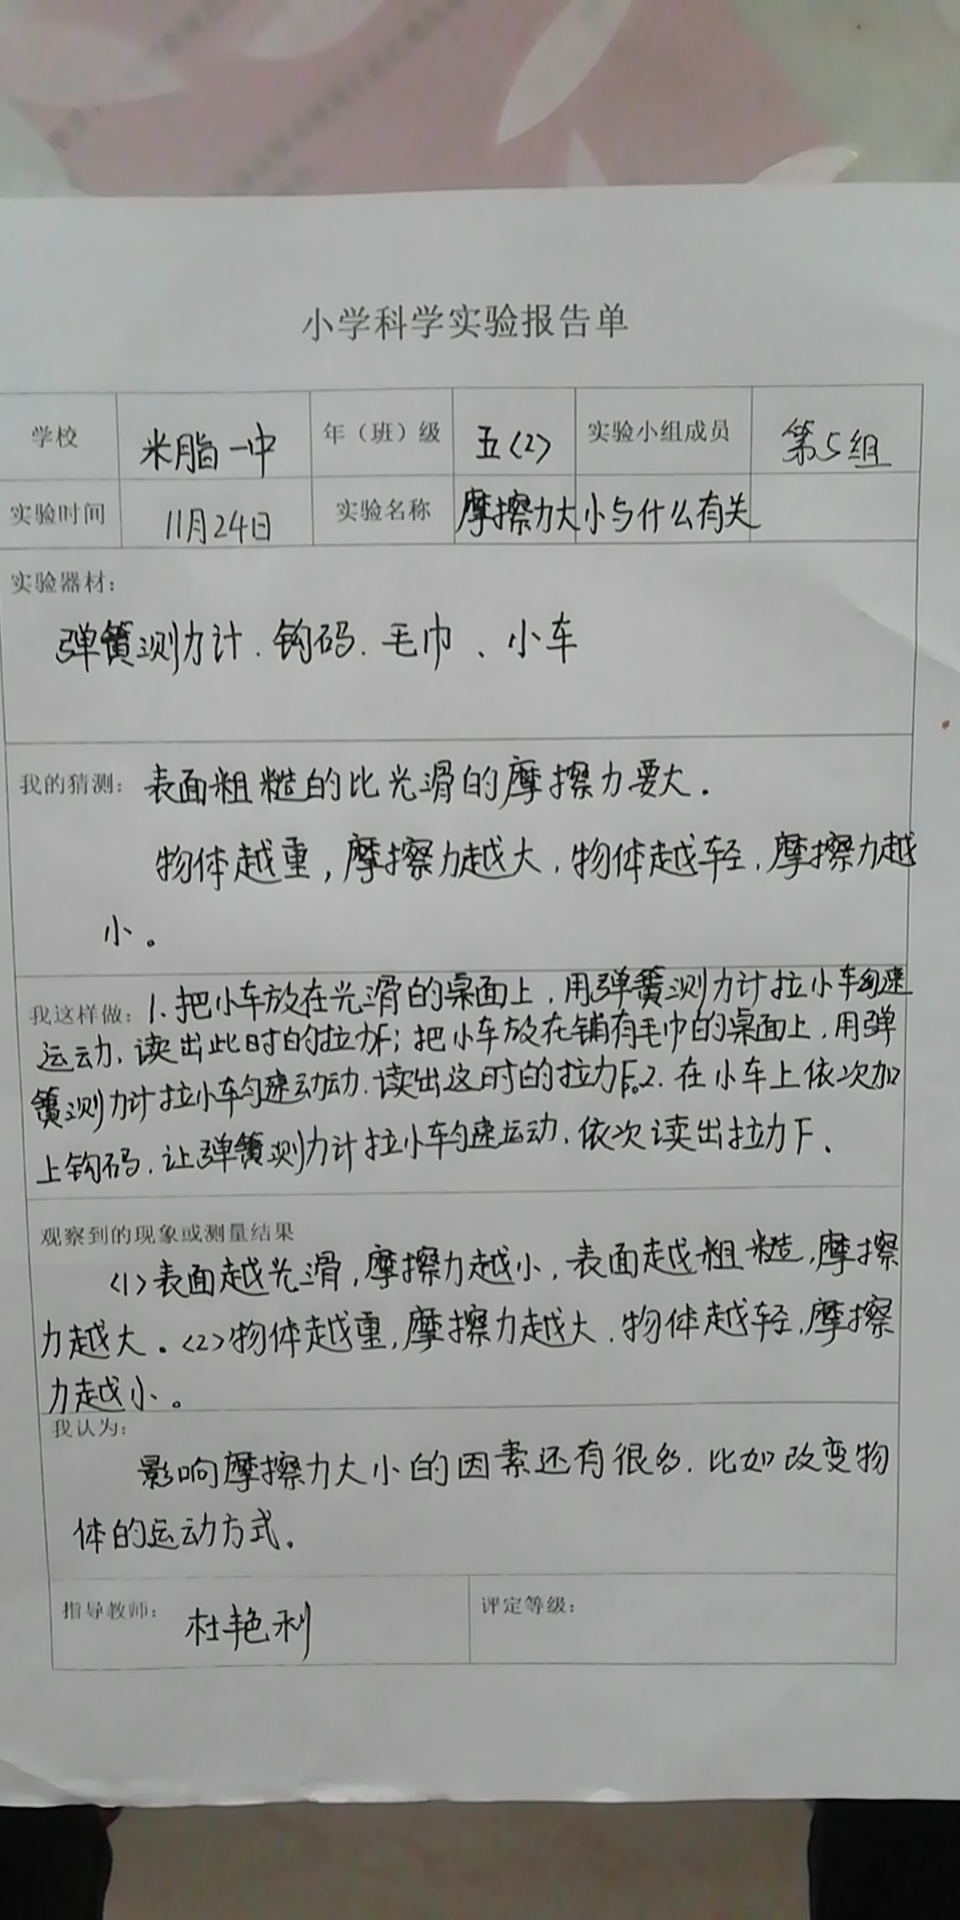 小学科学实验报告单
学校 米脂一中 年（班）级 五（2） 实验小组成员 第5组
实验时间 11月24日 实验名称 摩擦力大小与什么有关
实验器材：
弹簧测力计、钩码、毛巾、小车
我的猜测：表面粗糙的比光滑的摩擦力要大。
物体越重，摩擦力越大，物体越轻，摩擦力越
小。
我这样做：1、把小车放在光滑的桌面上，用弹簧测力计拉小车匀速
运动，读出此时的拉力F；把小车放在铺有毛巾的桌面上，用弹
簧测力计拉小车匀速动动，读出这时的拉力F。2、在小车上依次加
上钩码，让弹簧测力计拉小车匀速运动，依次读出拉力F、
观察到的现象或测量结果
（1）表面越光滑，摩擦力越小，表面越粗糙，摩擦
力越大。（2）物体越重，摩擦力越大，物体越轻，摩擦
力越小。
我认为：
影响摩擦力大小的因素还有很多，比如改变物
体的运动方式。
指导教师：杜艳利 评定等级：